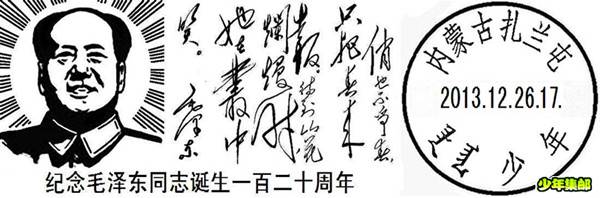 俏也不争春
只把春来
报待到山花
爛熳时
她在叢中
笑。
毛泽东
纪念毛泽东同志诞生一百二十周年
内蒙古扎兰屯
2013.12.26.17.
少年
少年集邮